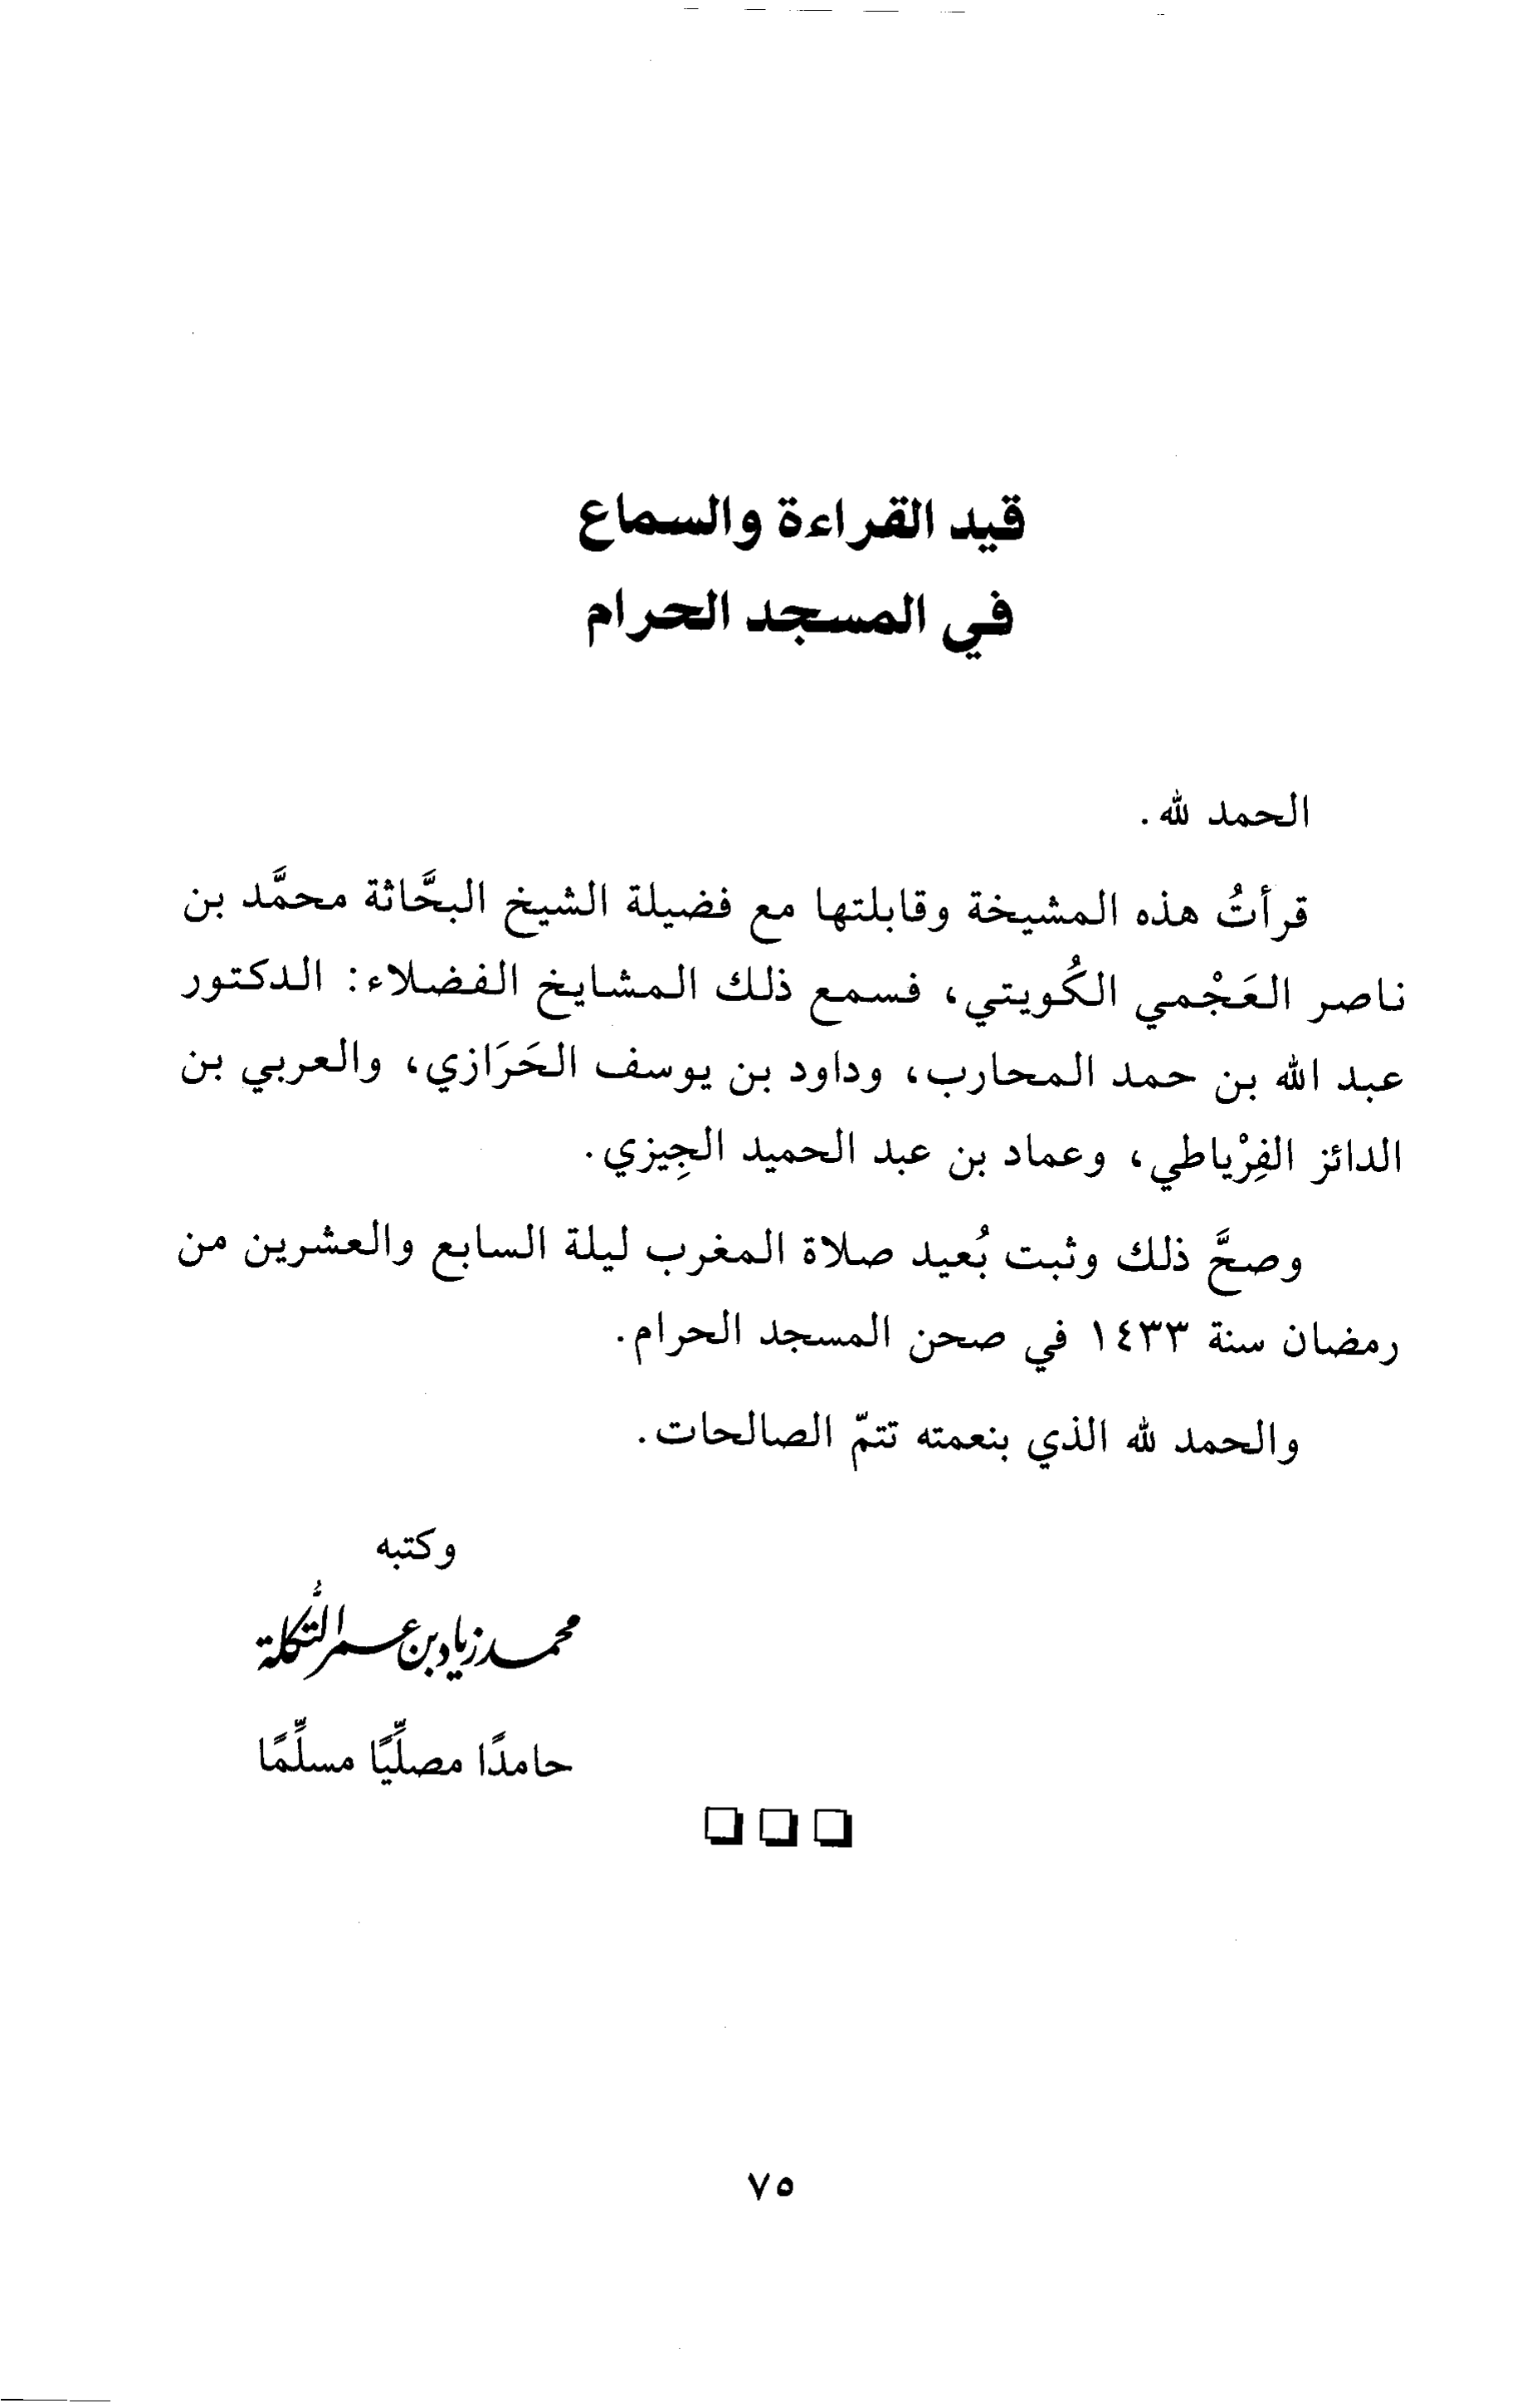 قيد القراءة والسماع
في المسجد الحرام
الحمد لله.
قرأتُ هذه المشيخة وقابلتها مع فضيلة الشيخ البحَّاثة محمَّد بن
ناصر العَجْمي الكُويتي، فسمع ذلك المشايخ الفضلاء: الدكتور
عبد الله بن حمد المحارب، وداود بن يوسف الحَرَازي، والعربي بن
الدائز الفِرْياطي، وعماد بن عبد الحميد الجِيزي.
وصحَّ ذلك وثبت بُعيد صلاة المغرب ليلة السابع والعشرين من
رمضان سنة ١٤٣٣ في صحن المسجد الحرام.
والحمد لله الذي بنعمته تتمّ الصالحات.
وكتبه
محمد زياد بن عمر التُّكلة
حامدًا مصلِّيًا مسلِّمًا
٧٥